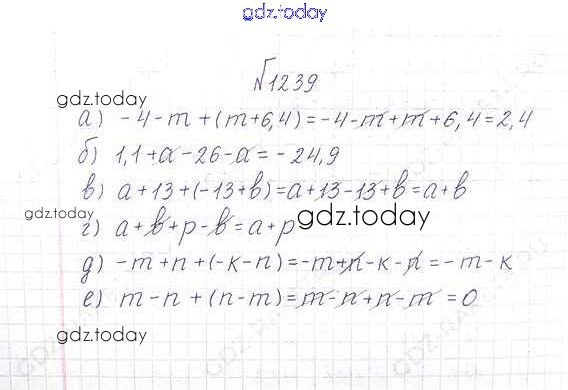 gdz.today
№1239
gdz.today
а) -4-m+(m+6,4)=-4-m+m+6,4=2,4
б) 1,1+a-26-a=-24,9
в) a+13+(-13+b)=a+13-13+b=a+b
gdz.today gdz.today
г) a+b+p-b=a+p
д) -m+n+(-k-n)=-m+n-k-n=-m-k
е) m-n+(n-m)=m-n+n-m=0
gdz.today